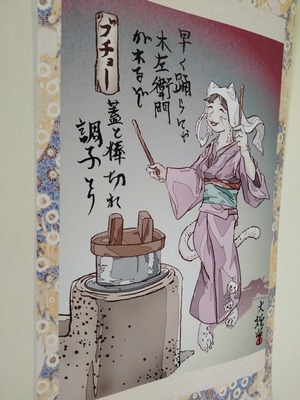 早く踊らにゃ
木左衛門
が来るぞ
ブチョー
蓋と棒切れ
調子とり